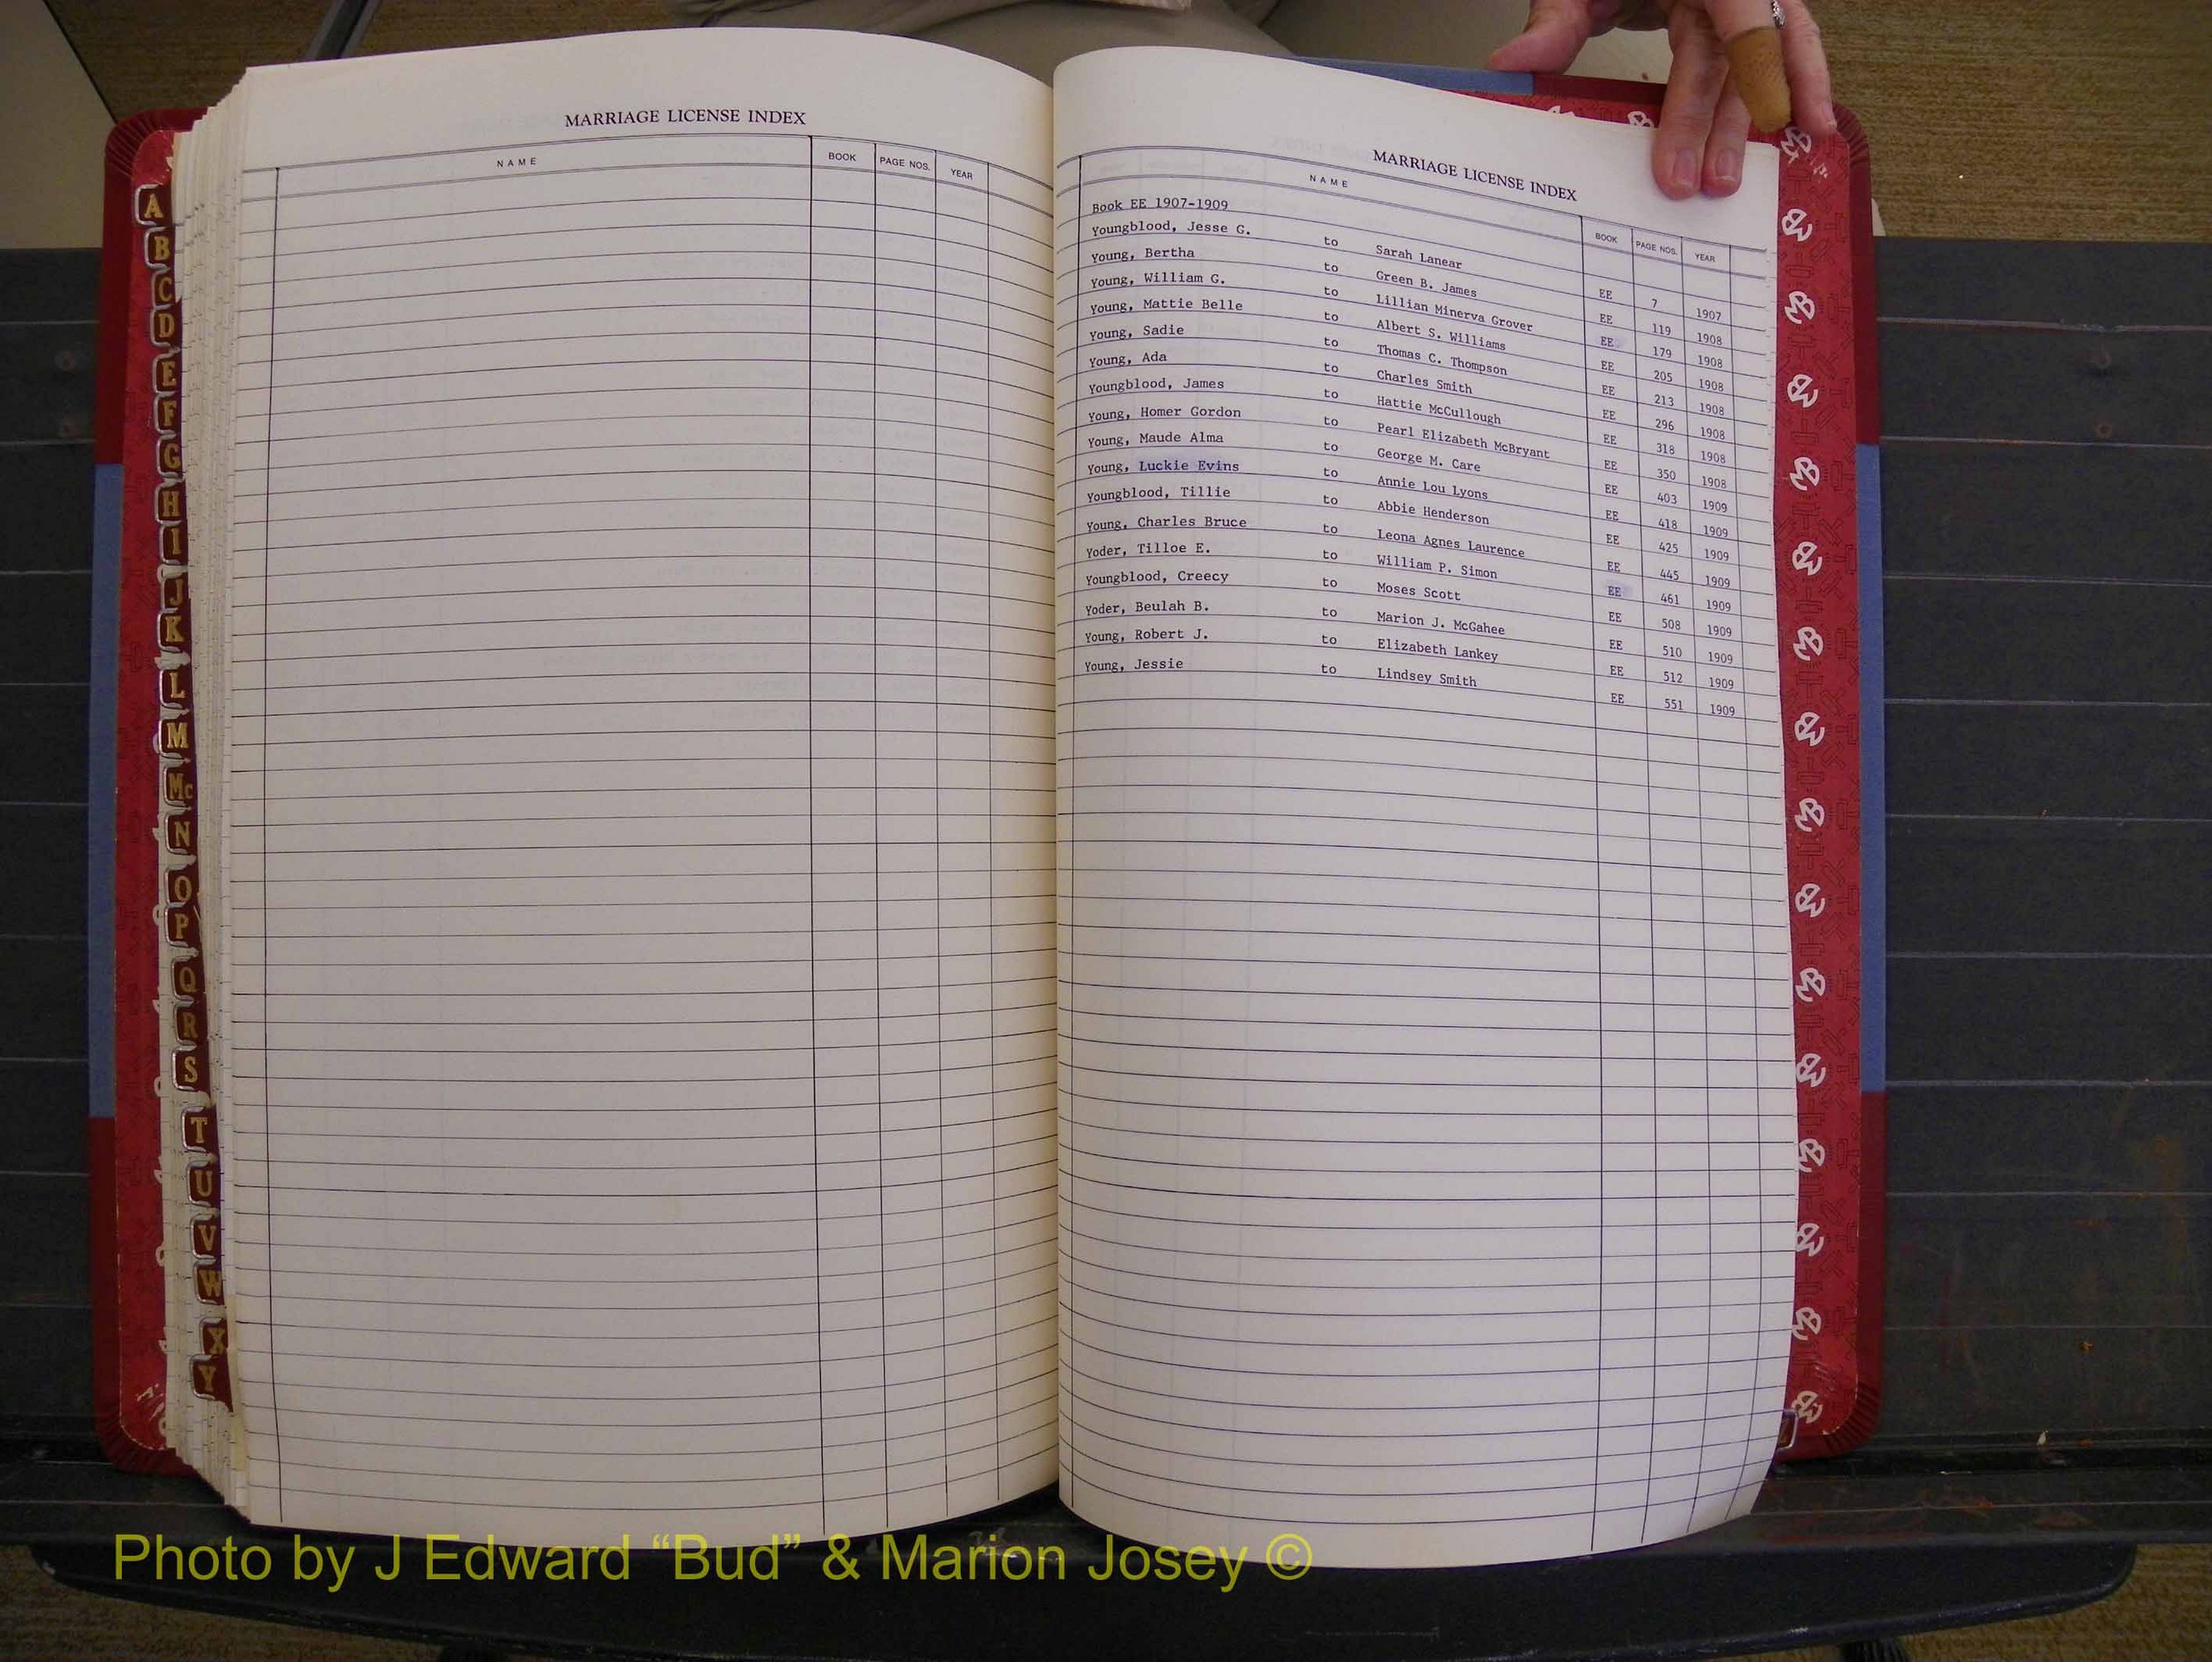 MARRIAGE LICENSE INDEX
NAME BOOK PAGE NOS. YEAR
A
B
C
D
E
F
G
H
I
J
K
L
M
Mc
N
O
P
Q
R
S
T
U
V
W
X
Y
MARRIAGE LICENSE INDEX
NAME BOOK PAGE NOS. YEAR
Book EE 1907-1909
Youngblood, Jesse G. to Sarah Lanear EE 7 1907
Young, Bertha to Green B. James EE 119 1908
Young, William G. to Lillian Minerva Grover EE 179 1908
Young, Mattie Belle to Albert S. Williams EE 205 1908
Young, Sadie to Thomas C. Thompson EE 213 1908
Young, Ada to Charles Smith EE 296 1908
Youngblood, James to Hattie McCullough EE 318 1908
Young, Homer Gordon to Pearl Elizabeth McBryant EE 350 1908
Young, Maude Alma to George M. Care EE 403 1909
Young, Luckie Evins to Annie Lou Lyons EE 418 1909
Youngblood, Tillie to Abbie Henderson EE 425 1909
Young, Charles Bruce to Leona Agnes Laurence EE 445 1909
Yoder, Tilloe E. to William P. Simon EE 461 1909
Youngblood, Creecy to Moses Scott EE 508 1909
Yoder, Beulah B. to Marion J. McGahee EE 510 1909
Young, Robert J. to Elizabeth Lankey EE 512 1909
Young, Jessie to Lindsey Smith EE 551 1909
Photo by J Edward “Bud” & Marion Josey ©